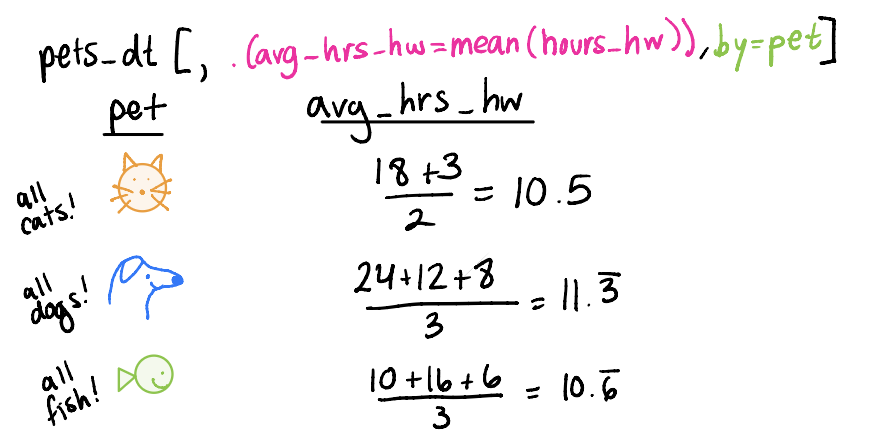 pets_dt [, .(avg_hrs_hw=mean(hours_hw)), by=pet]
pet avg_hrs_hw
all cats! (18+3)/2 = 10.5
all dogs! (24+12+8)/3 = 11.3̅
all fish! (10+16+6)/3 = 10.6̅